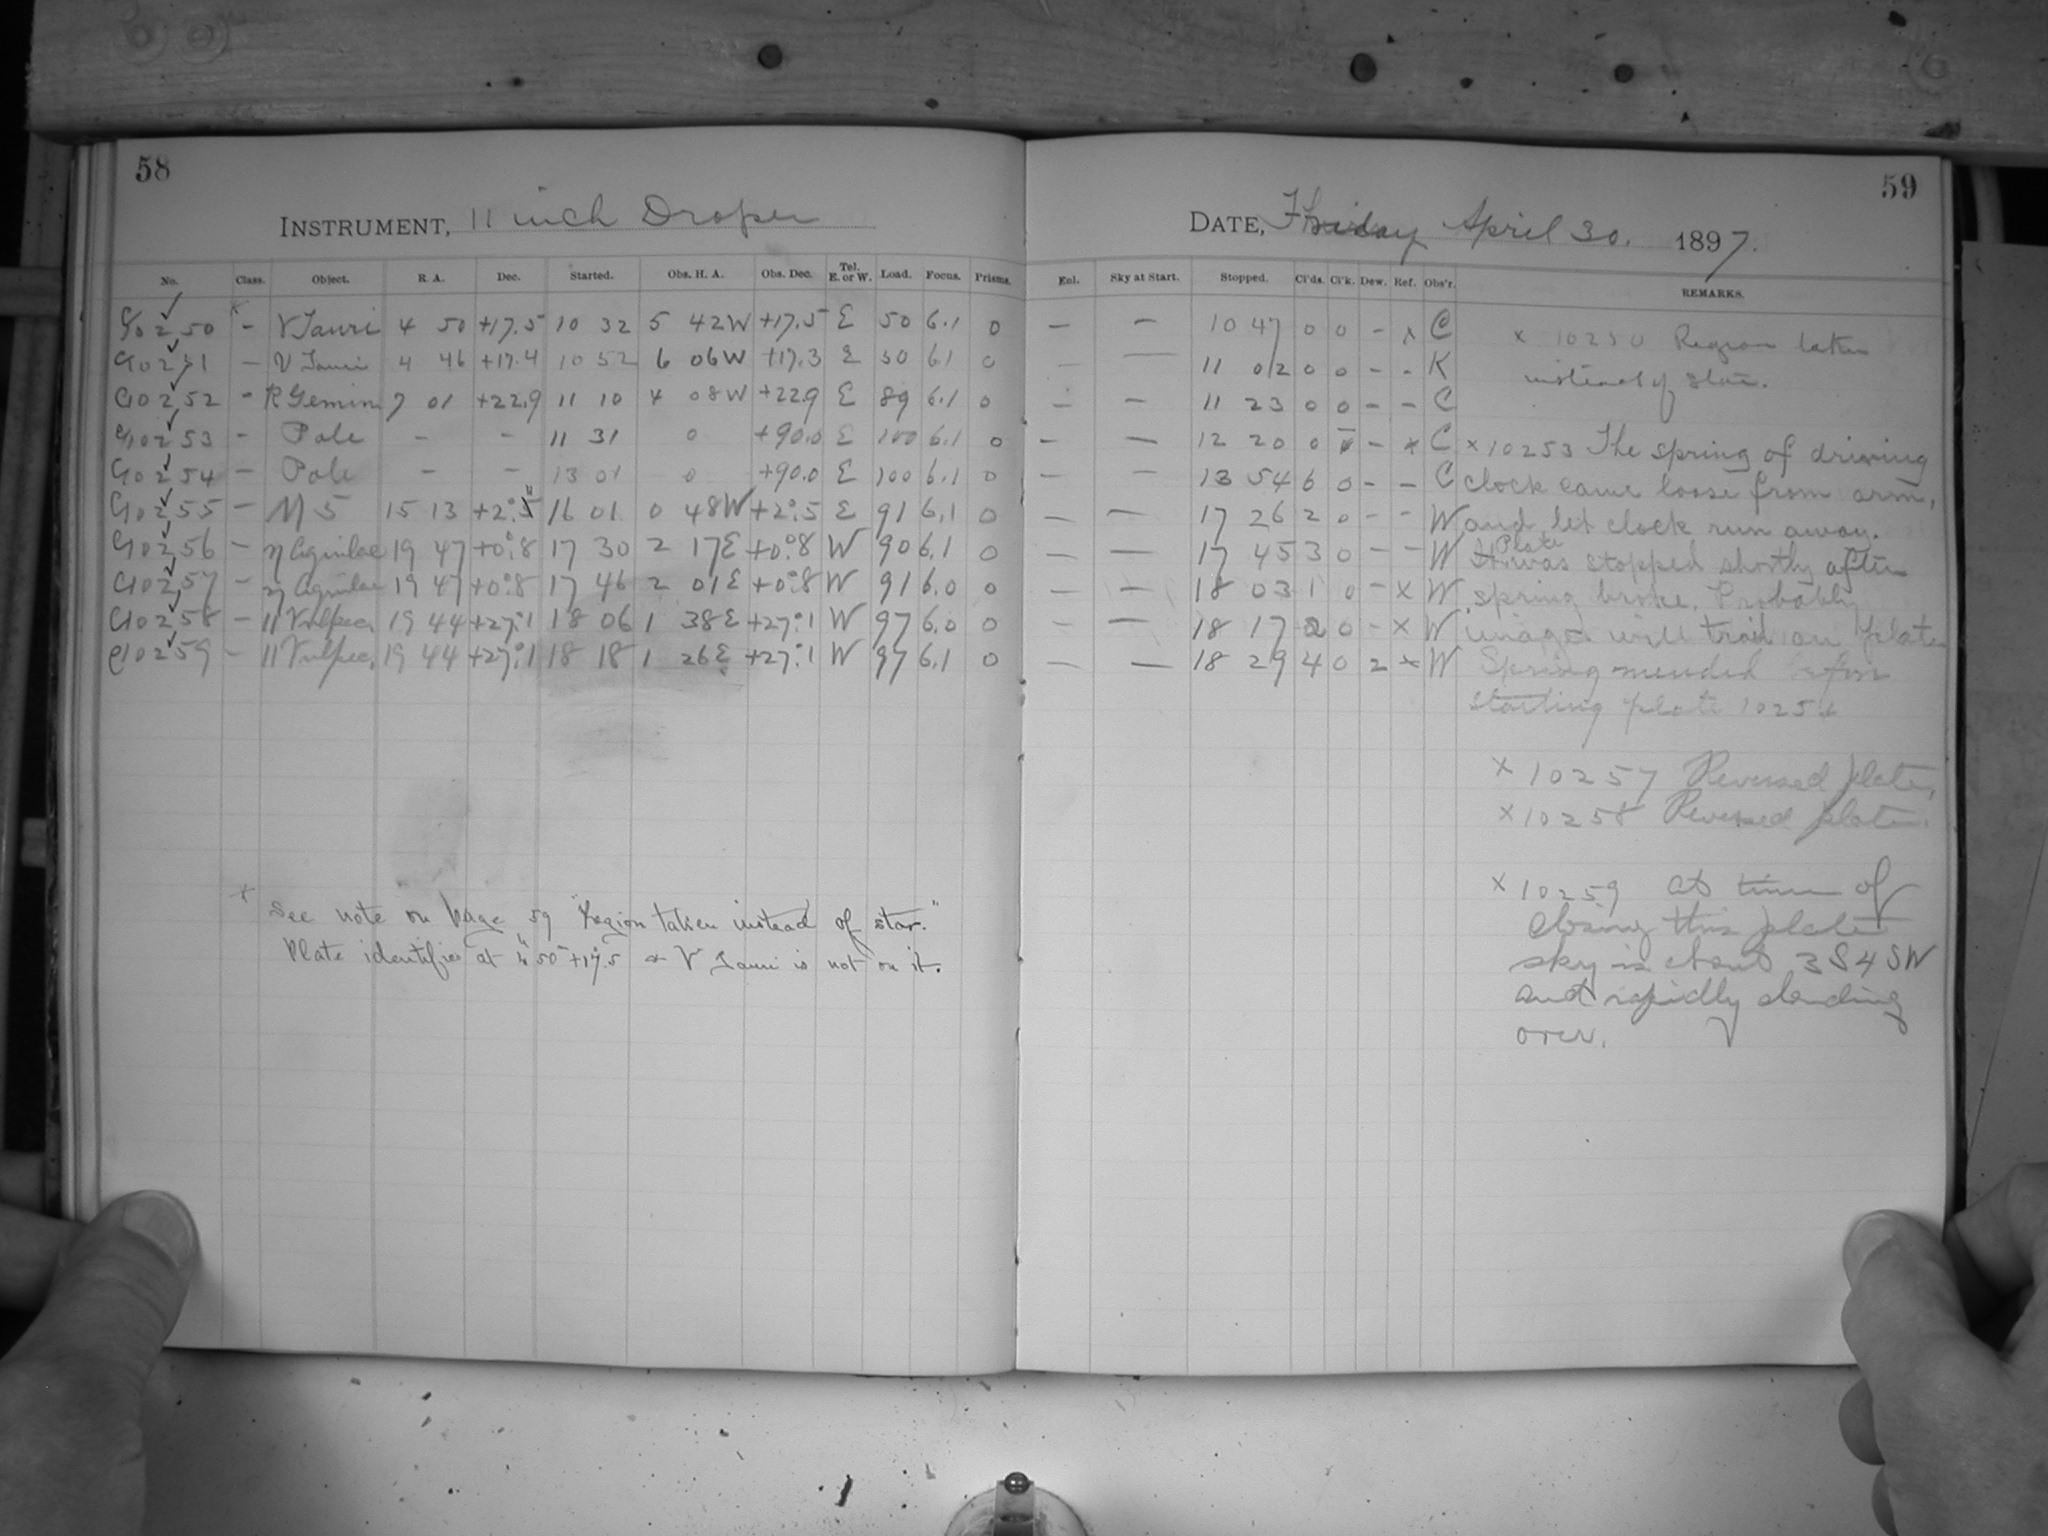 58
INSTRUMENT, 11 inch Draper
No. Class. Object. R. A. Dec. Started. Obs. H. A. Obs. Dec. Tel. E. or W. Load. Focus. Prisms.
C10250 x - V Tauri 4 50 +17.5 10 32 5 42W +17.5 E 50 6.1 0
C10251 - V Tauri 4 46 +17.4 10 52 6 06W +17.3 E 50 6.1 0
C10252 - R Gemin 7 01 +22.9 11 10 4 08W +22.9 E 89 6.1 0
C10253 - Pole - - 11 31 0 +90.0 E 100 6.1 0
C10254 - Pole - - 13 01 0 +90.0 E 100 6.1 0
C10255 - M 5 15 13 +2°.5 16 01 0 48W +2°.5 E 91 6.1 0
C10256 - η Aquilae 19 47 +0°.8 17 30 2 17E +0°.8 W 90 6.1 0
C10257 - η Aquilae 19 47 +0°.8 17 46 2 01E +0°.8 W 91 6.0 0
C10258 - 11 Vulpec. 19 44 +27°.1 18 06 1 38E +27°.1 W 97 6.0 0
C10259 - 11 Vulpec. 19 44 +27°.1 18 18 1 26E +27°.1 W 97 6.1 0
x See note on page 59 "Region taken instead of star."
Plate identified at 4h 50m +17°.5 & V Tauri is not on it.
59
DATE, Friday April 30. 1897.
Enl. Sky at Start. Stopped. Cl'ds. Cl'k. Dew. Ref. Obs'r. REMARKS.
- - 10 47 0 0 - x C
- - 11 02 0 0 - - K
- - 11 23 0 0 - - C
- - 12 20 0 - x C
- - 13 54 6 0 - - C
- - 17 26 2 0 - - W
- - 17 45 3 0 - - W
- - 18 03 1 0 - x W
- - 18 17 2 0 - x W
- - 18 29 4 0 2 x W
x 10250 Region taken
instead of star.
x 10253 The spring of driving
clock came loose from arm,
and let clock run away.
Plate was stopped shortly after
spring broke. Probably
images will trail on plate
Spring mended before
starting plate 10254
x 10257 Reversed plate.
x 10258 Reversed plate.
x 10259 At time of
closing this plate
sky is about 3 S 4 SW
and rapidly clouding
over.